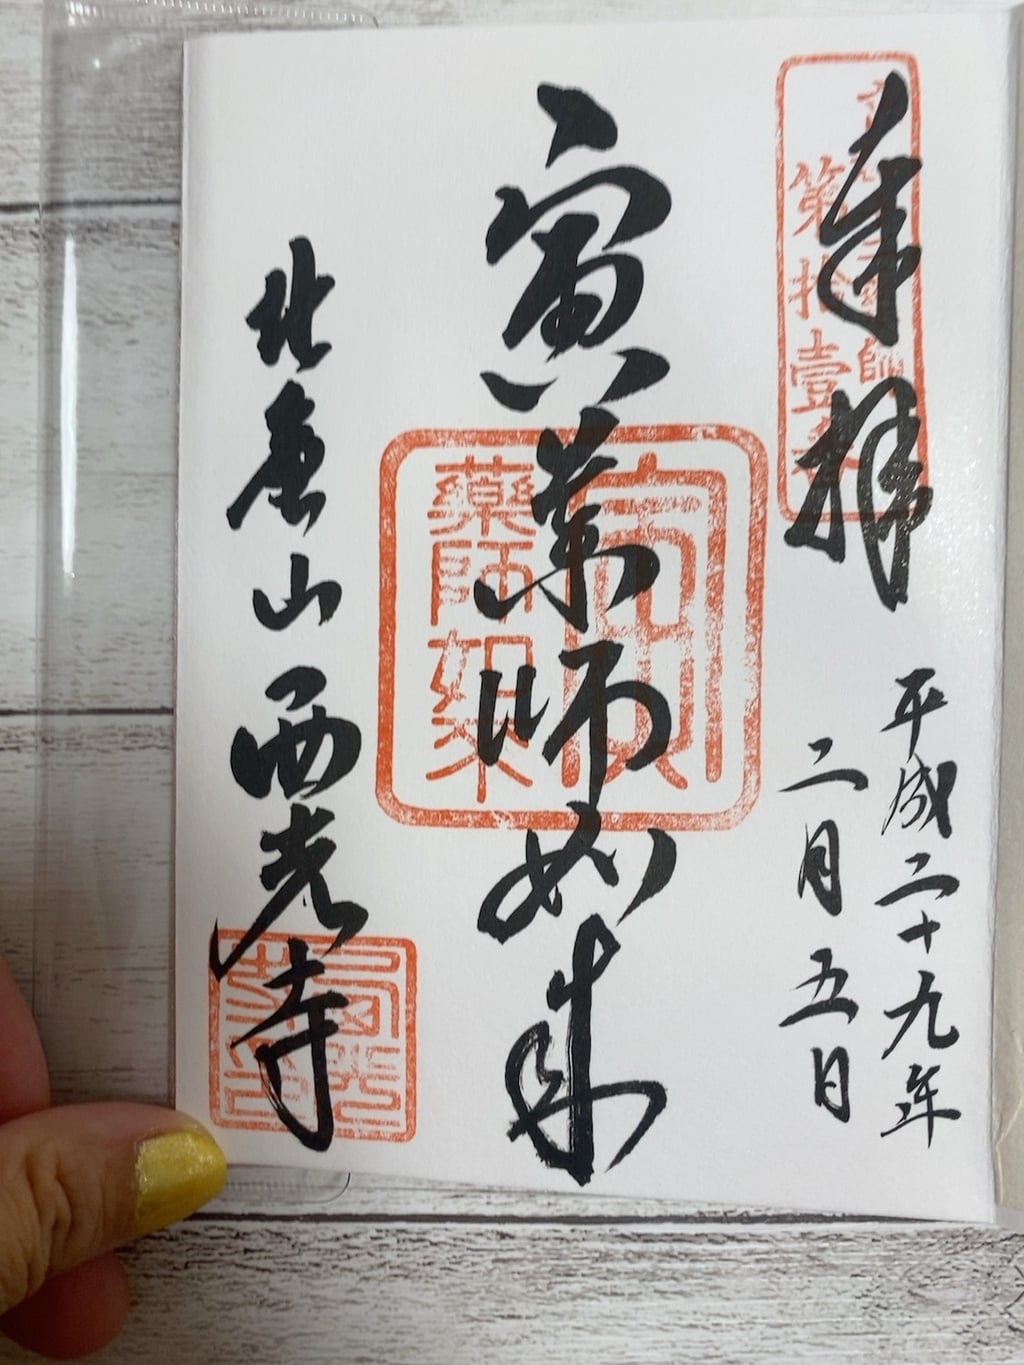 奉拝
平成二十九年
二月五日
第拾壹
師
寅薬師如来
寅
藥師如来
北亀山 西光寺